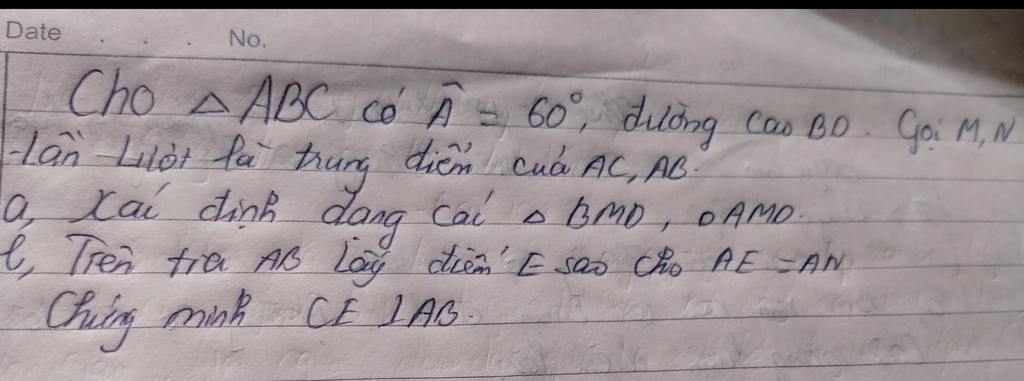 Date . . . No.
Cho △ ABC có Â = 60°, đường cao BD. Gọi M, N
lần lượt là trung điểm của AC, AB.
a, Xác định dạng các △ BMD, △ AMD.
b, Trên tia AB lấy điểm E sao cho AE = AN
Chứng minh CE ⊥ AB.